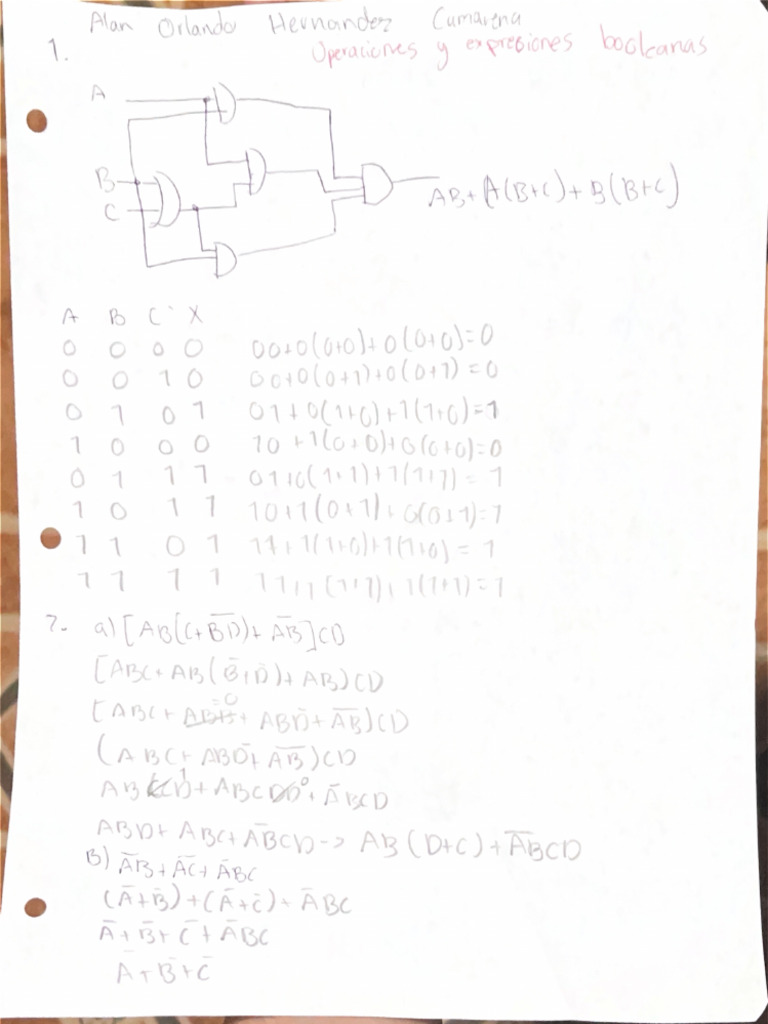 Alan Orlando Hernandez Cumarena
1. Operaciones y expresiones booleanas
A
B
C
AB+A(B+C)+B(B+C)
A B C X
0 0 0 0 00+0(0+0)+0(0+0)=0
0 0 1 0 00+0(0+1)+0(0+1)=0
0 1 0 1 01+0(1+0)+1(1+0)=1
1 0 0 0 10+1(0+0)+0(0+0)=0
0 1 1 1 01+0(1+1)+1(1+1)=1
1 0 1 1 10+1(0+1)+0(0+1)=1
1 1 0 1 11+1(1+0)+1(1+0)=1
1 1 1 1 11+1(1+1)+1(1+1)=1
2- a)[AB(C+B̅D̅)+A̅B̅]CD
[ABC+AB(B̅+D̅)+AB)CD
[ABC+ABB̅=0+ABD̅+A̅B̅)CD
(ABC+ABD̅+A̅B̅)CD
ABCCD1+ABCDD̅0+A̅BCD
ABD+ABC+A̅B̅CD->AB(D+C)+A̅B̅CD
B) A̅B̅+A̅C̅+A̅BC
(A̅+B̅)+(A̅+C̅)+A̅BC
A̅+B̅+C̅+A̅BC
A̅+B̅+C̅